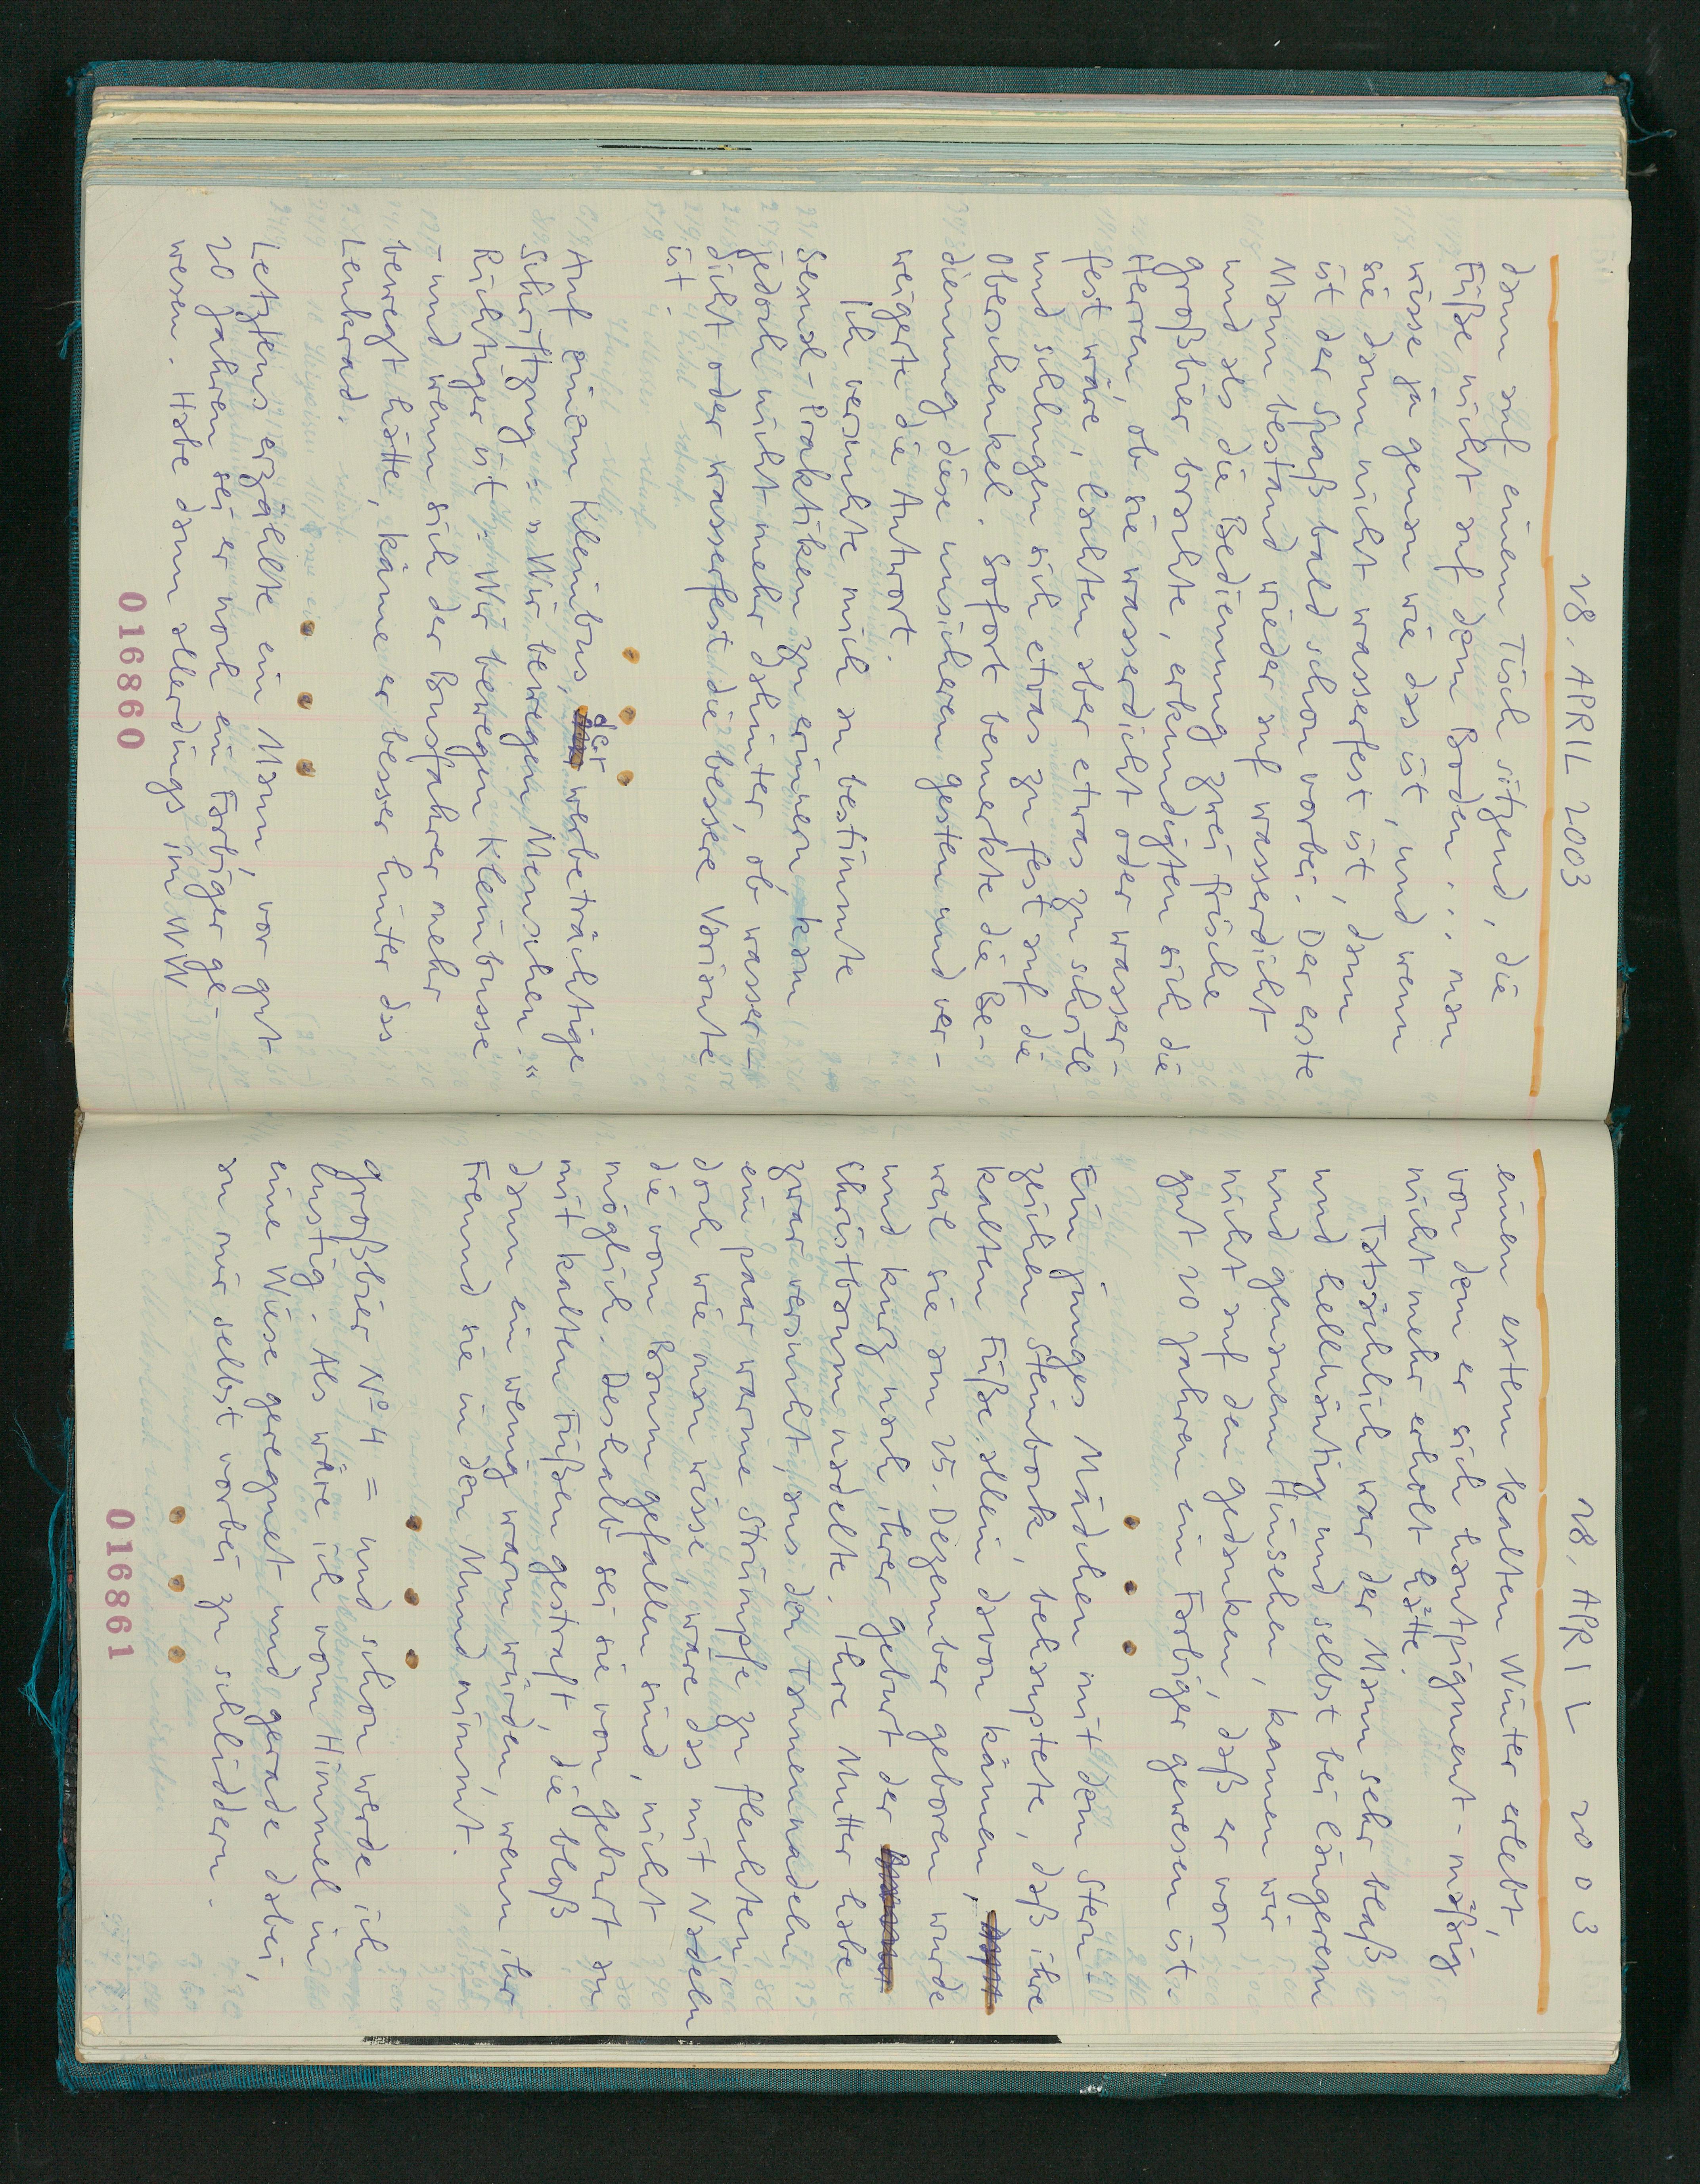 28. APRIL 2003
dann auf einem Tisch sitzend, die
Füße nicht auf dem Boden ... man
wisse ja genau wie das ist, und wenn
sie dann nicht wasserfest ist, dann
ist der Spaß bald schon vorbei. Der erste
Mann bestand wieder auf wasserdicht
und als die Bedienung zwei frische
Großbier brachte, erkundigten sich die
Herren, ob sie wasserdicht oder wasser-
fest wäre, lachten aber etwas zu schrill
und schlugen sich etwas zu fest auf die
Oberschenkel. Sofort bemerkte die Be-
dienung diese unsicheren Gesten und ver-
weigerte die Antwort.
Ich versuchte mich an bestimmte
Sexual-Praktiken zu erinnern, kam
jedoch nicht mehr dahinter, ob wasser-
dicht oder wasserfest die bessere Variante
ist.
Auf einem Kleinbus, der werbeträchtige
Schriftzug: „Wir bewegen Menschen."
Richtiger ist: Wir bewegen Kleinbusse
- und wenn sich der Busfahrer mehr
bewegt hätte, käme er besser hinter das
Lenkrad.
Letztens erzählte ein Mann, vor gut
20 Jahren sei er noch ein Farbiger ge-
wesen. Habe dann allerdings im WW
016860
28. APRIL 2003
einen extem kalten Winter erlebt,
von dem er sich hautpigment-mäßig
nicht mehr erholt hätte.
Tatsächlich war der Mann sehr blaß
und hellhäutig und selbst bei längerem
und genauem Hinsehen, kamen wir
nicht auf den Gedanken, daß er vor
gut 20 Jahren ein Farbiger gewesen ist.
Ein junges Mädchen mit dem Stern-
zeichen Steinbock, behauptete, daß ihre
kalten Füße allein davon kämen,
weil sie am 25. Dezember geboren wurde
und kurz nach ihrer Geburt der
Christbaum nadelte. Ihre Mutter habe
zwar versucht, aus den Tannennadeln
ein paar warme Strümpfe zu flechten,
doch wie man wisse, wäre das mit Nadeln
die vom Baum gefallen sind, nicht
möglich. Deshalb sei sie von Geburt an
mit kalten Füßen gestraft, die bloß
dann ein wenig warm würden, wenn ihr
Freund sie in den Mund nimmt.
Großbier Nº 4 = und schon werde ich
lustig. Als wäre ich vom Himmel in
eine Wiese geregnet und gerade dabei,
an mir selbst vorbei zu schliddern.
016861